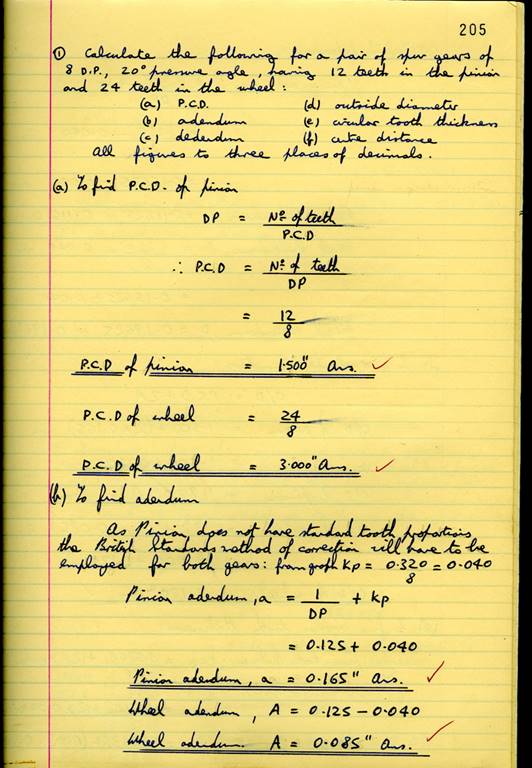 205
① Calculate the following for a pair of spur gears of
8 D.P., 20° pressure angle, having 12 teeth in the pinion
and 24 teeth in the wheel:
(a) P.C.D. (d) outside diameter
(b) adendum (e) circular tooth thickness
(c) dedendum (f) centre distance
All figures to three places of decimals.
(a) To find P.C.D. of pinion
DP = Nº of teeth / P.C.D
∴ P.C.D = Nº of teeth / DP
= 12 / 8
P.C.D of pinion = 1.500" Ans. ✓
P.C.D of wheel = 24 / 8
P.C.D of wheel = 3.000" Ans. ✓
(b) To find adendum
As Pinion does not have standard tooth proportions
the British Standards method of correction will have to be
employed for both gears: from graph Kp = 0.320 / 8 = 0.040
Pinion adendum, a = 1 / DP + Kp
= 0.125 + 0.040
Pinion adendum, a = 0.165" Ans. ✓
Wheel adendum, A = 0.125 - 0.040
Wheel adendum. A = 0.085" Ans. ✓